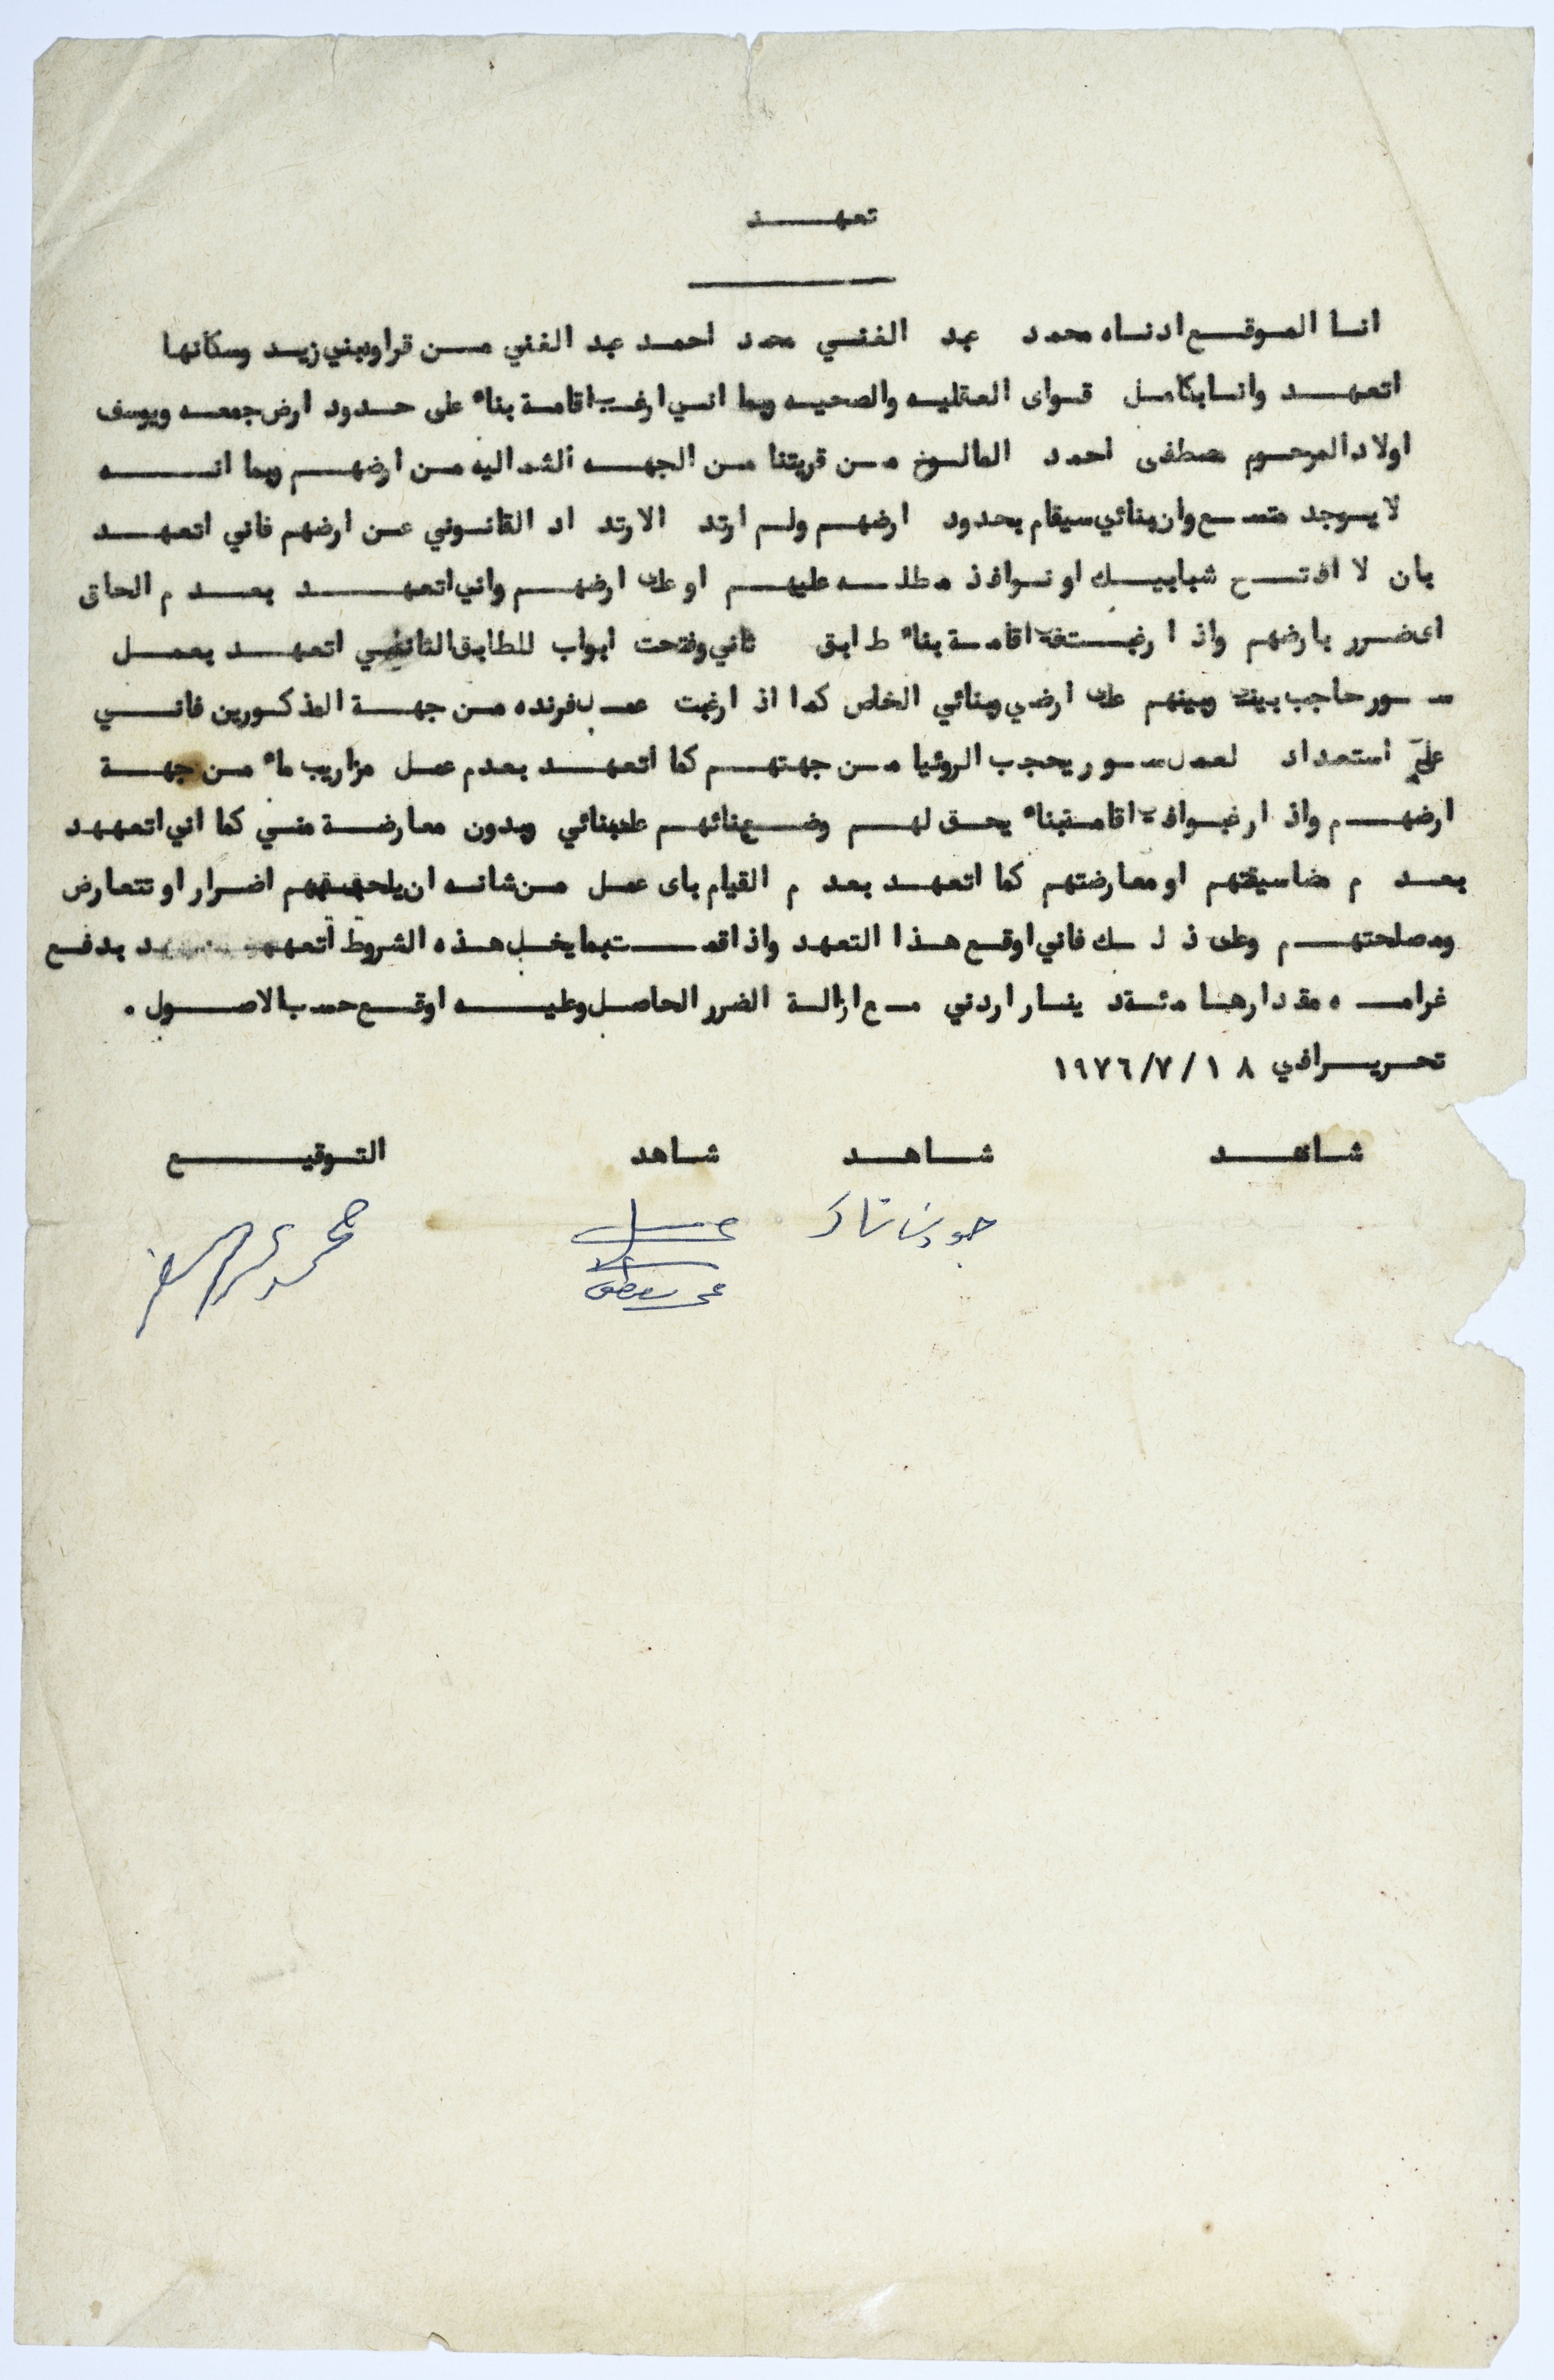 تعهد
انا الموقع ادناه محمد عبد الغني محمد احمد عبد الغني من قراوه بني زيد وسكانها
اتعهد وانا بكامل قواى العقليه والصحيه وبما اني ارغب اقامة بناء على حدود ارض جمعه ويوسف
اولاد المرحوم مصطفى احمد المالوخ من قريتنا من الجهه الشماليه من ارضهم وبما انه
لا يوجد متسع وان بنائي سيقام بحدود ارضهم ولم ارتد الارتداد القانوني عن ارضهم فاني اتعهد
بان لا افتح شبابيك او نوافذ مطله عليهم او على ارضهم واني اتعهد بعدم الحاق
اى ضرر بارضهم واذا رغبت في اقامة بناء طابق ثاني وفتحت ابواب للطابق الثاني اتعهد بعمل
سور حاجب بيني وبينهم على ارضي وبنائي الخاص كما اذا رغبت عمل فرنده من جهة المذكورين فاني
على استعداد لعمل سور يحجب الروئيا من جهتهم كما اتعهد بعدم عمل مزاريب ماء من جهة
ارضهم واذا رغبوا في اقامة بناء يحق لهم وضع بنائهم على بنائي وبدون معارضة مني كما اني اتعههد
بعدم مضاسيقتهم او معارضتهم كما اتعهد بعدم القيام باى عمل من شانه ان يلحق بهم اضرار او تتعارض
ومصلحتهم وعلى ذلك فاني اوقع هذا التعهد واذا قمت بما يخل هذه الشروط اتعهد بدفع
غرامه مقدارها مئة دينار اردني مع ازالة الضرر الحاصل وعليه اوقع حسب الاصول .
تحريرا في ١٨ /٧/ ١٩٧٦
شاهد شاهد شاهد التوقيع
محمد عبد الغني